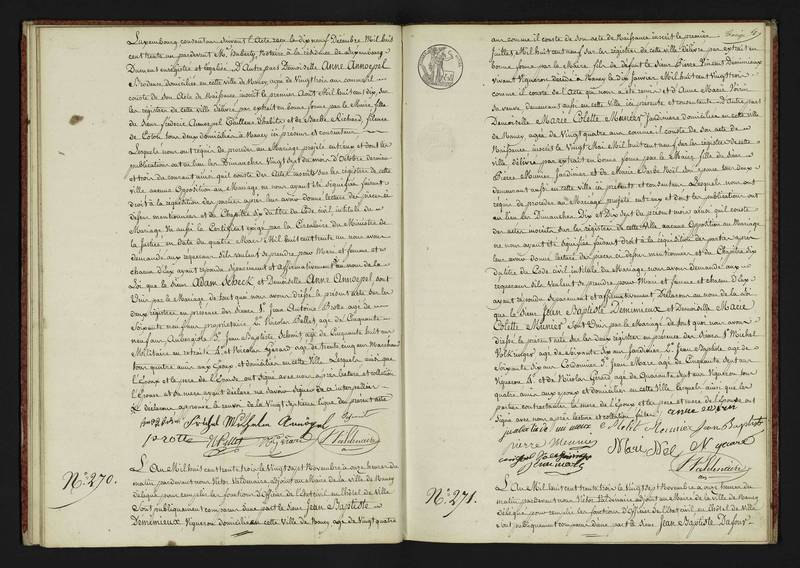 Luxembourg, consentant suivant l'Acte reçu le dix neuf Décembre Mil huit
cent trente un pardevant Me Notaire à la résidence de Luxembourg
Duement enregistré et légalisé. D'autre part Demoiselle Anne Annoepel
Brodeuse domiciliée en cette ville de Nancy, agée de Vingt trois ans comme il
conste de son Acte de Naissance inscrit le premier Août Mil huit cent dix, sur
les régistres de cette ville délivré par extrait en bonne forme par le Maire fille
du Sieur Frédéric Annoepel Tailleur d'habits et de Richard, fileuse
de Coton tous deux domiciliés à Nancy ici présens et consentans
Lesquels nous ont requis de procéder au Mariage projeté entreux et dont les
publications ont eu lieu les Dimanches Vingt Sept du mois d'Octobre dernier
et trois du courant ainsi qu'il conste des Actes inscrits sur les régistres de cette
ville aucune Opposition au Mariage ne nous ayant été signifiée faisant
droit à la réquisition des parties après leur avoir donné lecture des pièces ci
dessus mentionnées et du Chapitre Six du titre du Code civil intitulé du
Mariage Vu aussi le Certificat exigé par la Circulaire du Ministre de
la Justice en date du quatre Mars Mil huit cent trente un nous avons
demandé aux requérans s'ils veulent se prendre pour Mari et femme et
chacun d'Eux ayant répondu séparément et affirmativement au nom de la
Loi que le Sieur Adam Scheck et Demoiselle Anne Annoepel sont
Unis par le Mariage de tout quoi nous avons dressé le présent acte sur les
deux régistres en présence des Sieurs 1° Jean Antoine Protte agé de
Soixante neuf ans propriétaire 2° Nicolas Pellet agé de Cinquante
neuf ans Aubergiste 3° Jean Baptiste Schmit agé de Cinquante huit ans
Militaire en retraite 4° et Nicolas Gérard agé de trente cinq ans Marchand
tous quatre amis aux Epoux et domiciliés en cette Ville Lesquels ainsi que
l'Epoux et le père de l'Epouse ont signé avec nous après lecture et collation
l'Epouse et sa mère ayant déclaré ne savoir signer de ce interpellées
N° 270.
L'An Mil huit cent trente trois le Vingt Sept Novembre à onze heures du
matin pardevant nous Victor Valdenaire adjoint au Maire de la ville de Nancy
délégué pour remplir les fonctions d'Officier de l'état civil en l'hôtel de Ville
sont publiquement comparus d'une part le Sieur Jean Baptiste
Demimieux Vigneron domicilié en cette Ville de Nancy agé de Vingt quatre
ans comme il conste de son acte de Naissance inscrit le premier
Juillet Mil huit cent neuf sur les régistres de cette ville délivré par extrait en
bonne forme par le Maire fils de défunt le Sieur Pierre Demimieux
Vivant Vigneron décédé à Nancy le dix Janvier Mil huit cent Vingt trois
comme il conste de l'Acte qui nous a été remis et d'Anne Marie Voirin
sa veuve demeurant aussi en cette Ville ici présente et consentante. D'autre part
Demoiselle Marie Colette Meunier Jardinière domiciliée en cette ville
de Nancy agée de Vingt quatre ans comme il conste de son acte de
Naissance inscrit le Vingt Mai Mil huit cent neuf sur les régistres de cette
ville délivré par extrait en bonne forme par le Maire fille du Sieur
Pierre Meunier Jardinier et de Marie Barbe Noel son épouse tous deux
demeurant aussi en cette ville ici présens et consentans Lesquels nous ont
requis de procéder au Mariage projeté entreux et dont les publications ont
eu lieu les Dimanches Dix et Dix Sept du présent mois ainsi qu'il conste
des actes inscrits sur les régistres de cette Ville aucune Opposition au Mariage
ne nous ayant été signifiée faisant droit à la réquisition des parties après
leur avoir donné lecture des pièces ci dessus mentionnées et du Chapitre Six
du titre du Code civil intitulé du Mariage nous avons demandé aux
requérans s'ils veulent se prendre pour Mari et femme et chacun d'Eux
ayant répondu séparément et affirmativement Déclarons au nom de la loi
que le Sieur Jean Baptiste Demimieux et Demoiselle Marie
Colette Meunier sont Unis par le Mariage de tout quoi nous avons
dressé le présent acte sur les deux régistres en présence des Sieurs 1° Michel
agé de Soixante dix ans Jardinier 2° Jean Baptiste agé de
Soixante dix ans Cordonnier 3° Jean Marie agé de Cinquante sept ans
Vigneron 4° et de Nicolas Gérard agé de Quarante sept ans Vigneron tous
quatre amis aux époux et domiciliés en cette Ville, lesquels ainsi que les
parties contractantes la mère de l'Epoux et les père et mère de l'Epouse ont
signé avec nous après lecture et collation faites.
pierre Meunier
N° 271.
L'An Mil huit cent trente trois le Vingt Sept Novembre à onze heures du
matin pardevant nous Victor Valdenaire adjoint au Maire de la ville de Nancy
délégué pour remplir les fonctions d'Officier de l'état civil en l'hôtel de Ville
sont publiquement comparus d'une part le Sieur Jean Baptiste Dufour